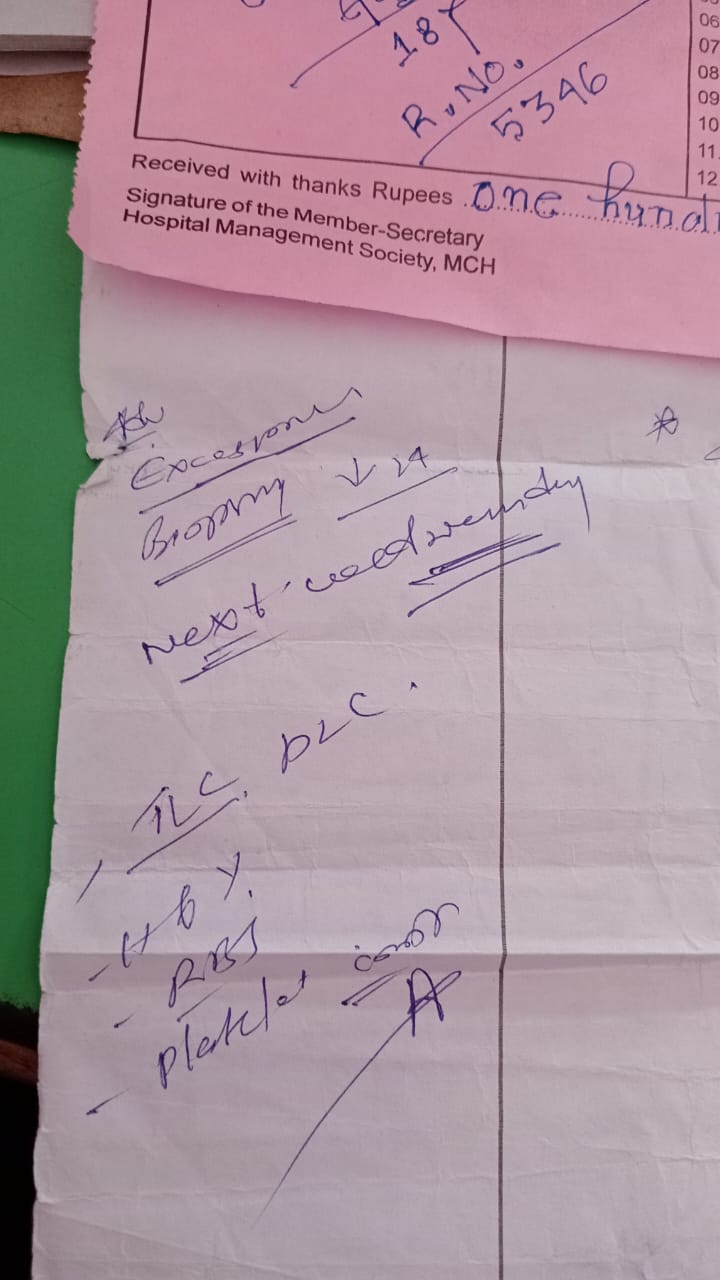 06
07
08
09
10
11.
12
18
R.No.
5346
Received with thanks Rupees one hund
Signature of the Member-Secretary
Hospital Management Society, MCH
Biopsy ↓ LA
Next wednesday
TLC, DLC.
- Hb%.
- RBS
- platelet count